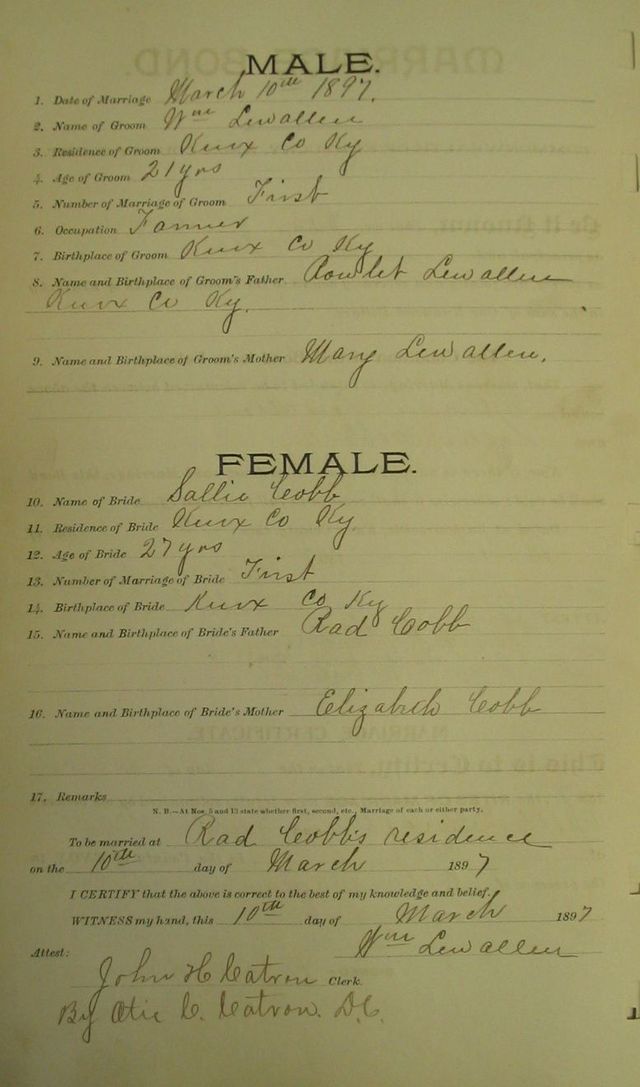 MALE.
1. Date of Marriage March 10th 1897.
2. Name of Groom Wm Lewallen
3. Residence of Groom Knox Co Ky
4. Age of Groom 21 yrs
5. Number of Marriage of Groom First
6. Occupation Farmer
7. Birthplace of Groom Knox Co Ky
8. Name and Birthplace of Groom's Father Rowlet Lewallen
Knox Co Ky.
9. Name and Birthplace of Groom's Mother Mary Lewallen.
FEMALE.
10. Name of Bride Sallie Cobb
11. Residence of Bride Knox Co Ky
12. Age of Bride 27 yrs
13. Number of Marriage of Bride First
14. Birthplace of Bride Knox Co Ky
15. Name and Birthplace of Bride's Father Rad Cobb
16. Name and Birthplace of Bride's Mother Elizabeth Cobb
17. Remarks
N. B.—At Nos. 5 and 13 state whether first, second, etc., Marriage of each or either party.
To be married at Rad Cobbs residence
on the 10th day of March 1897
I CERTIFY that the above is correct to the best of my knowledge and belief.
WITNESS my hand, this 10th day of March 1897
Wm Lewallen
Attest:
John H Catron Clerk.
By C. Catron. D.C.